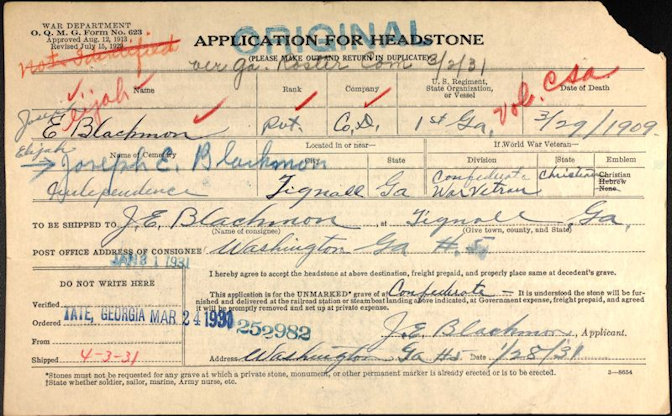 WAR DEPARTMENT
O. Q. M. G. Form No. 623
Approved Aug. 12, 1913
Revised July 15, 1929
ORIGINAL
APPLICATION FOR HEADSTONE
(PLEASE MAKE OUT AND RETURN IN DUPLICATE)
Not Identified
ver ga. Roster Com 3/2/31
Name Rank Company U. S. Regiment, State Organization, or Vessel Date of Death
Joseph Elijah
Vol. CSA
E Blackmon Pvt. Co, D, 1st Ga, 3/29/1909.
Elijah
Name of Cemetery Located in or near— If World War Veteran—
City State Division Emblem
→ Joseph E. Blackmon
Independence Tignall Ga Confederate War Vetran Christian
Christian
Hebrew
None
TO BE SHIPPED TO J. E. Blackmon, at Tignall, Ga,
(Name of consignee) (Give town, county, and State)
POST OFFICE ADDRESS OF CONSIGNEE Washington Ga #5
JAN 31 1931
I hereby agree to accept the headstone at above destination, freight prepaid, and properly place same at decedent's grave.
DO NOT WRITE HERE
This application is for the UNMARKED* grave of a Confederate — It is understood the stone will be furnished and delivered at the railroad station or steamboat landing above indicated, at Government expense, freight prepaid, and agreed it will be promptly removed and set up at private expense.
Verified
Ordered TATE, GEORGIA MAR 24 1930
252982
From
J. E. Blackmon, Applicant.
Shipped 4-3-31
Address Washington Ga #5 Date 1/28/31
*Stones must not be requested for any grave at which a private stone, monument, or other permanent marker is already erected or is to be erected. 3—8654
†State whether soldier, sailor, marine, Army nurse, etc.